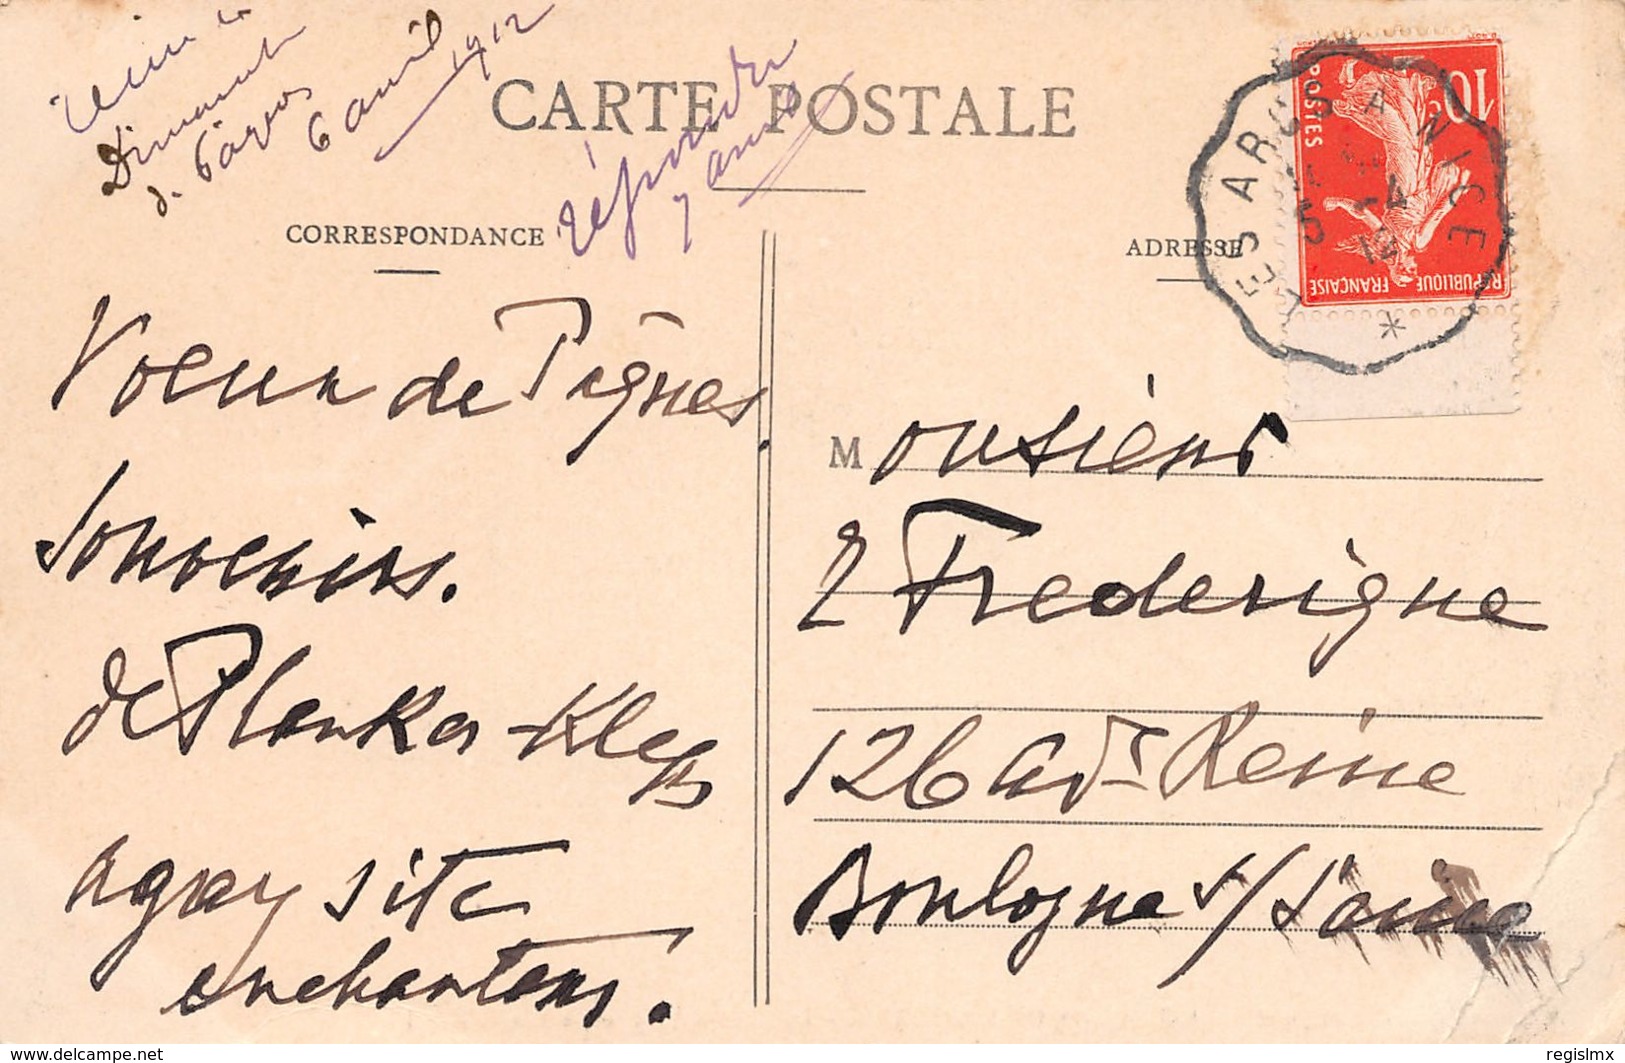 Dimanche
6 avril 1912
répondu
7 avril
CARTE POSTALE
CORRESPONDANCE
ADRESSE
POSTES
10c
REPUBLIQUE FRANÇAISE
LES ARCS A NICE
5 -4
12
Voeux de Pâques.
Souvenirs.
de Planka-Klaps
agay site
enchanteur.
Monsieur
L Frederique
126 Av. Reine
Boulogne s/Seine
delcampe.net
regislmx